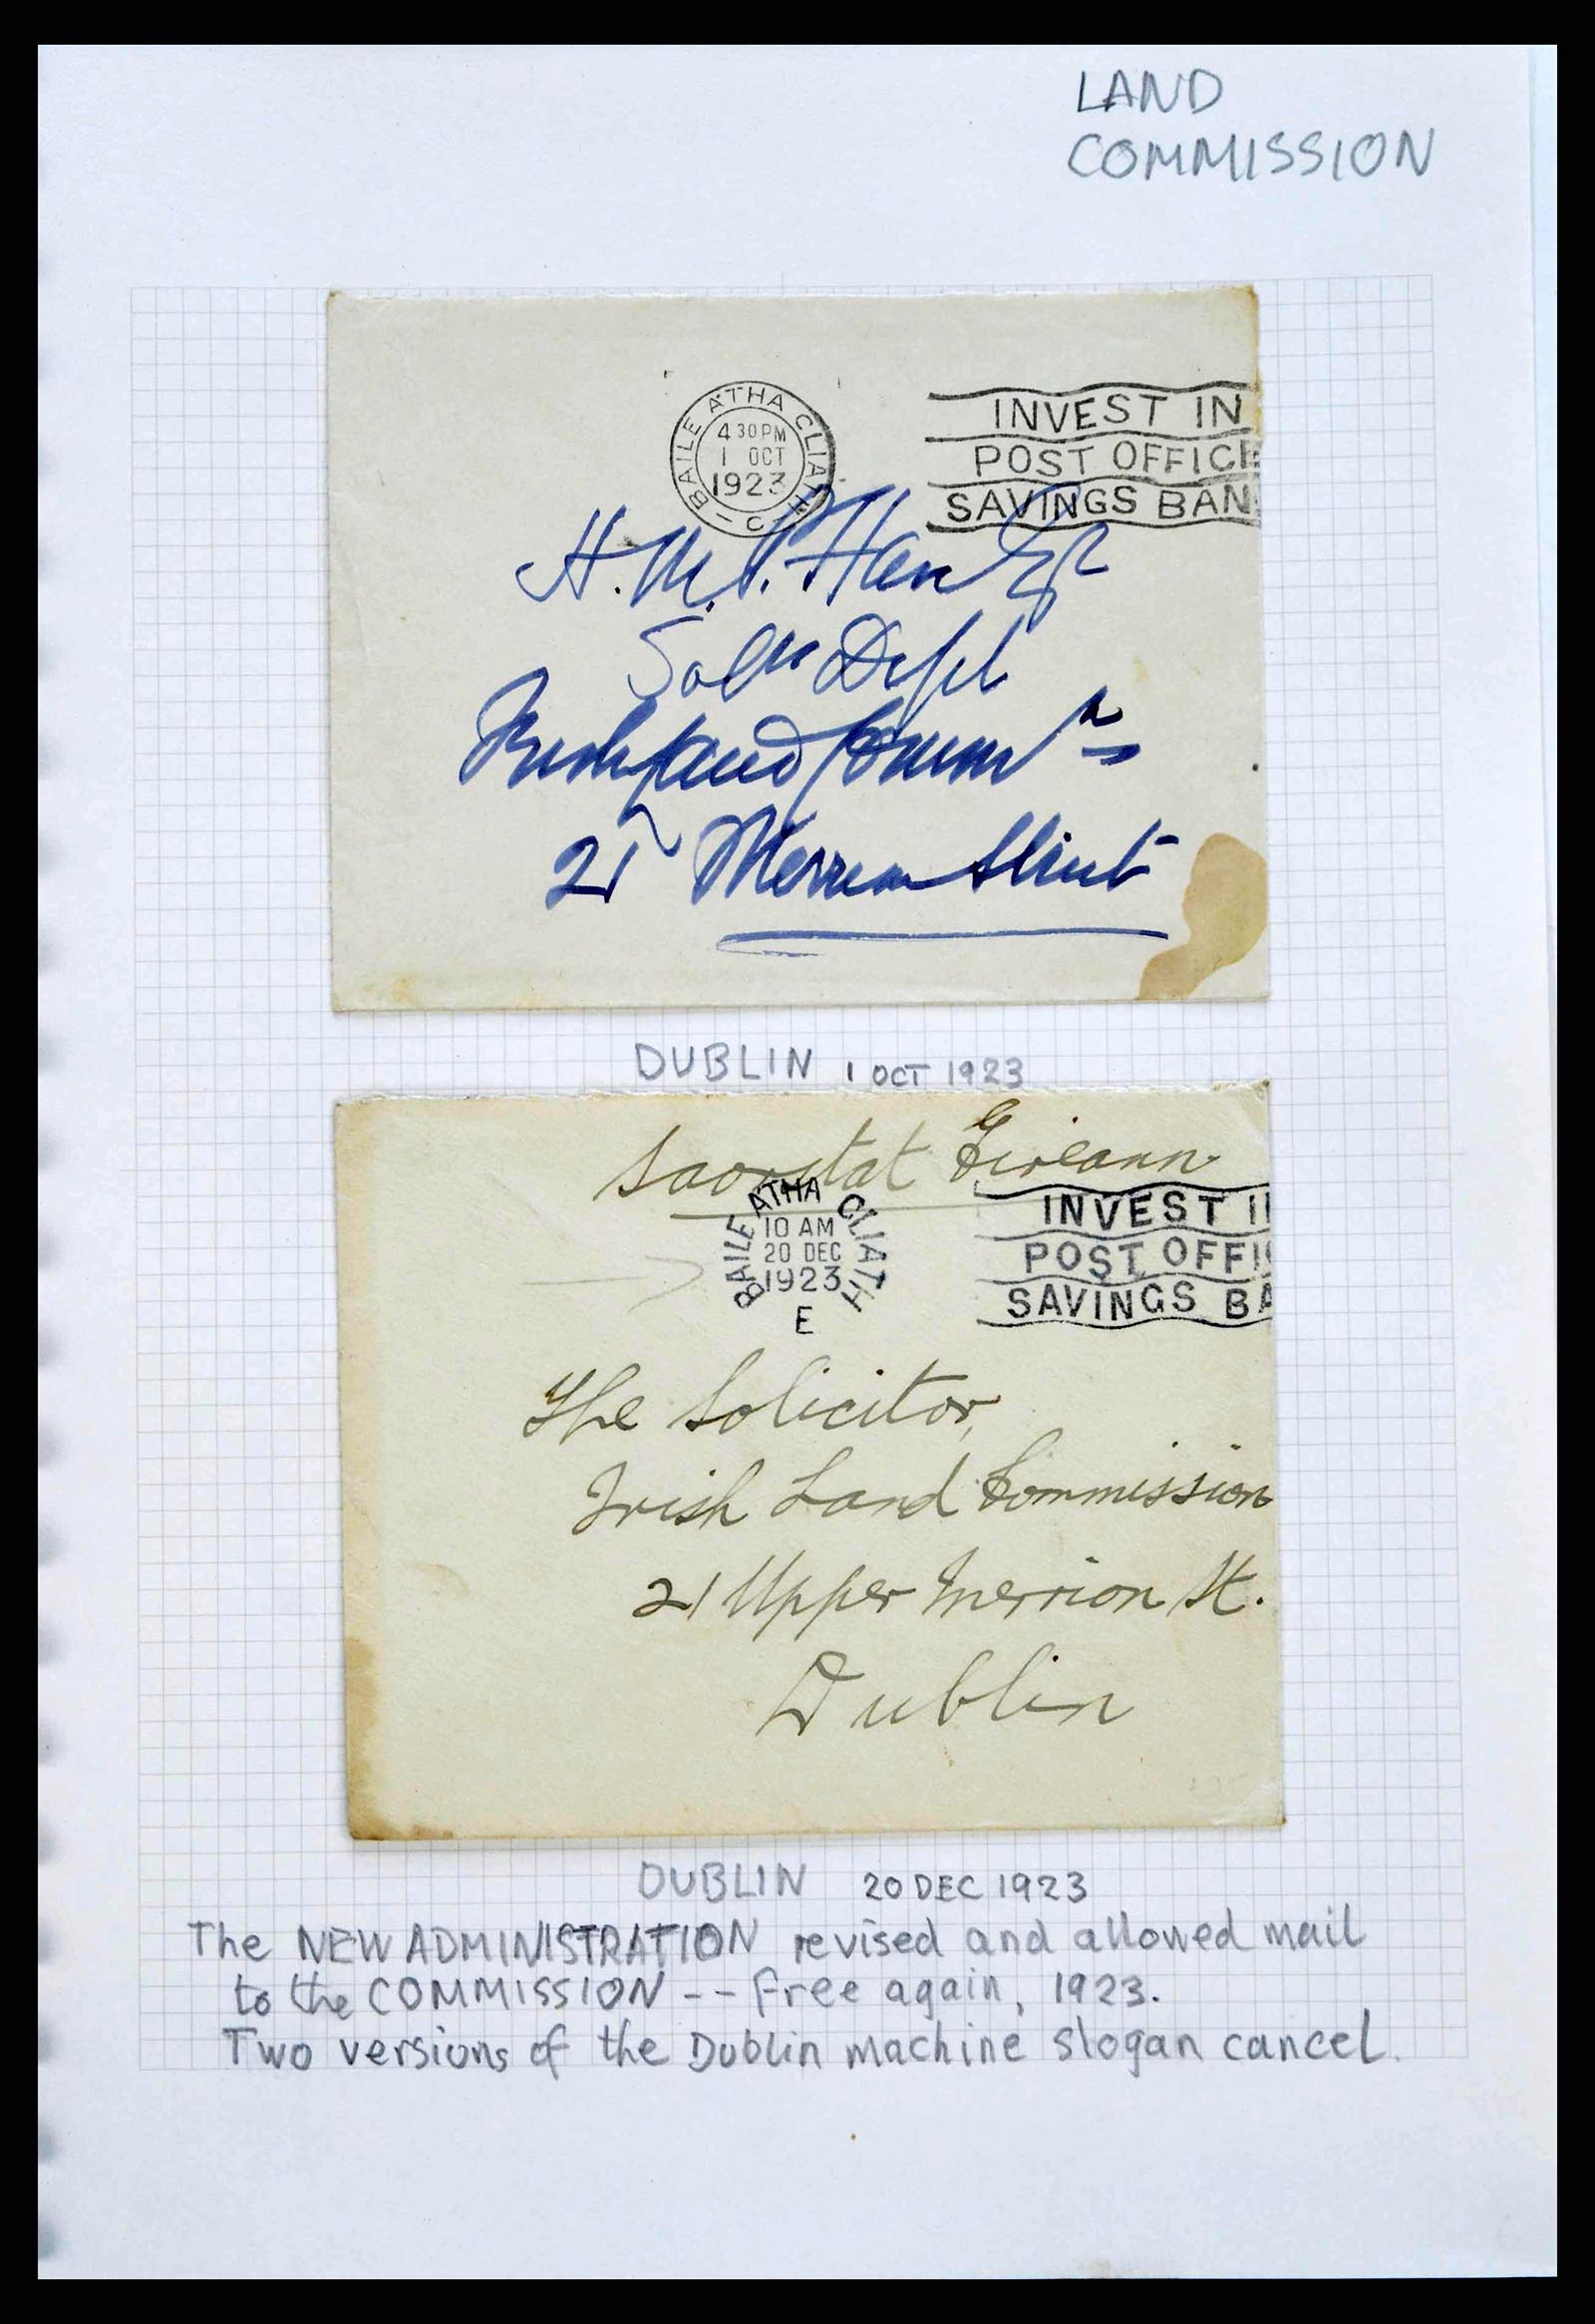 LAND
COMMISSION
BAILE ATHA CLIATH
4 30 PM
1 OCT
1923
C
INVEST IN
POST OFFICE
SAVINGS BAN
H. M. P.
Solrs Dept
Irish Land Commn
21 Merrion Street
DUBLIN 1 OCT 1923
Saorstat Eireann
BAILE ATHA CLIATH
10 AM
20 DEC
1923
E
INVEST I
POST OFFI
SAVINGS BA
The Solicitor,
Irish Land Commission
21 Upper Merrion St.
Dublin
DUBLIN 20 DEC 1923
The NEW ADMINISTRATION revised and allowed mail
to the COMMISSION -- Free again, 1923.
Two versions of the Dublin machine slogan cancel.